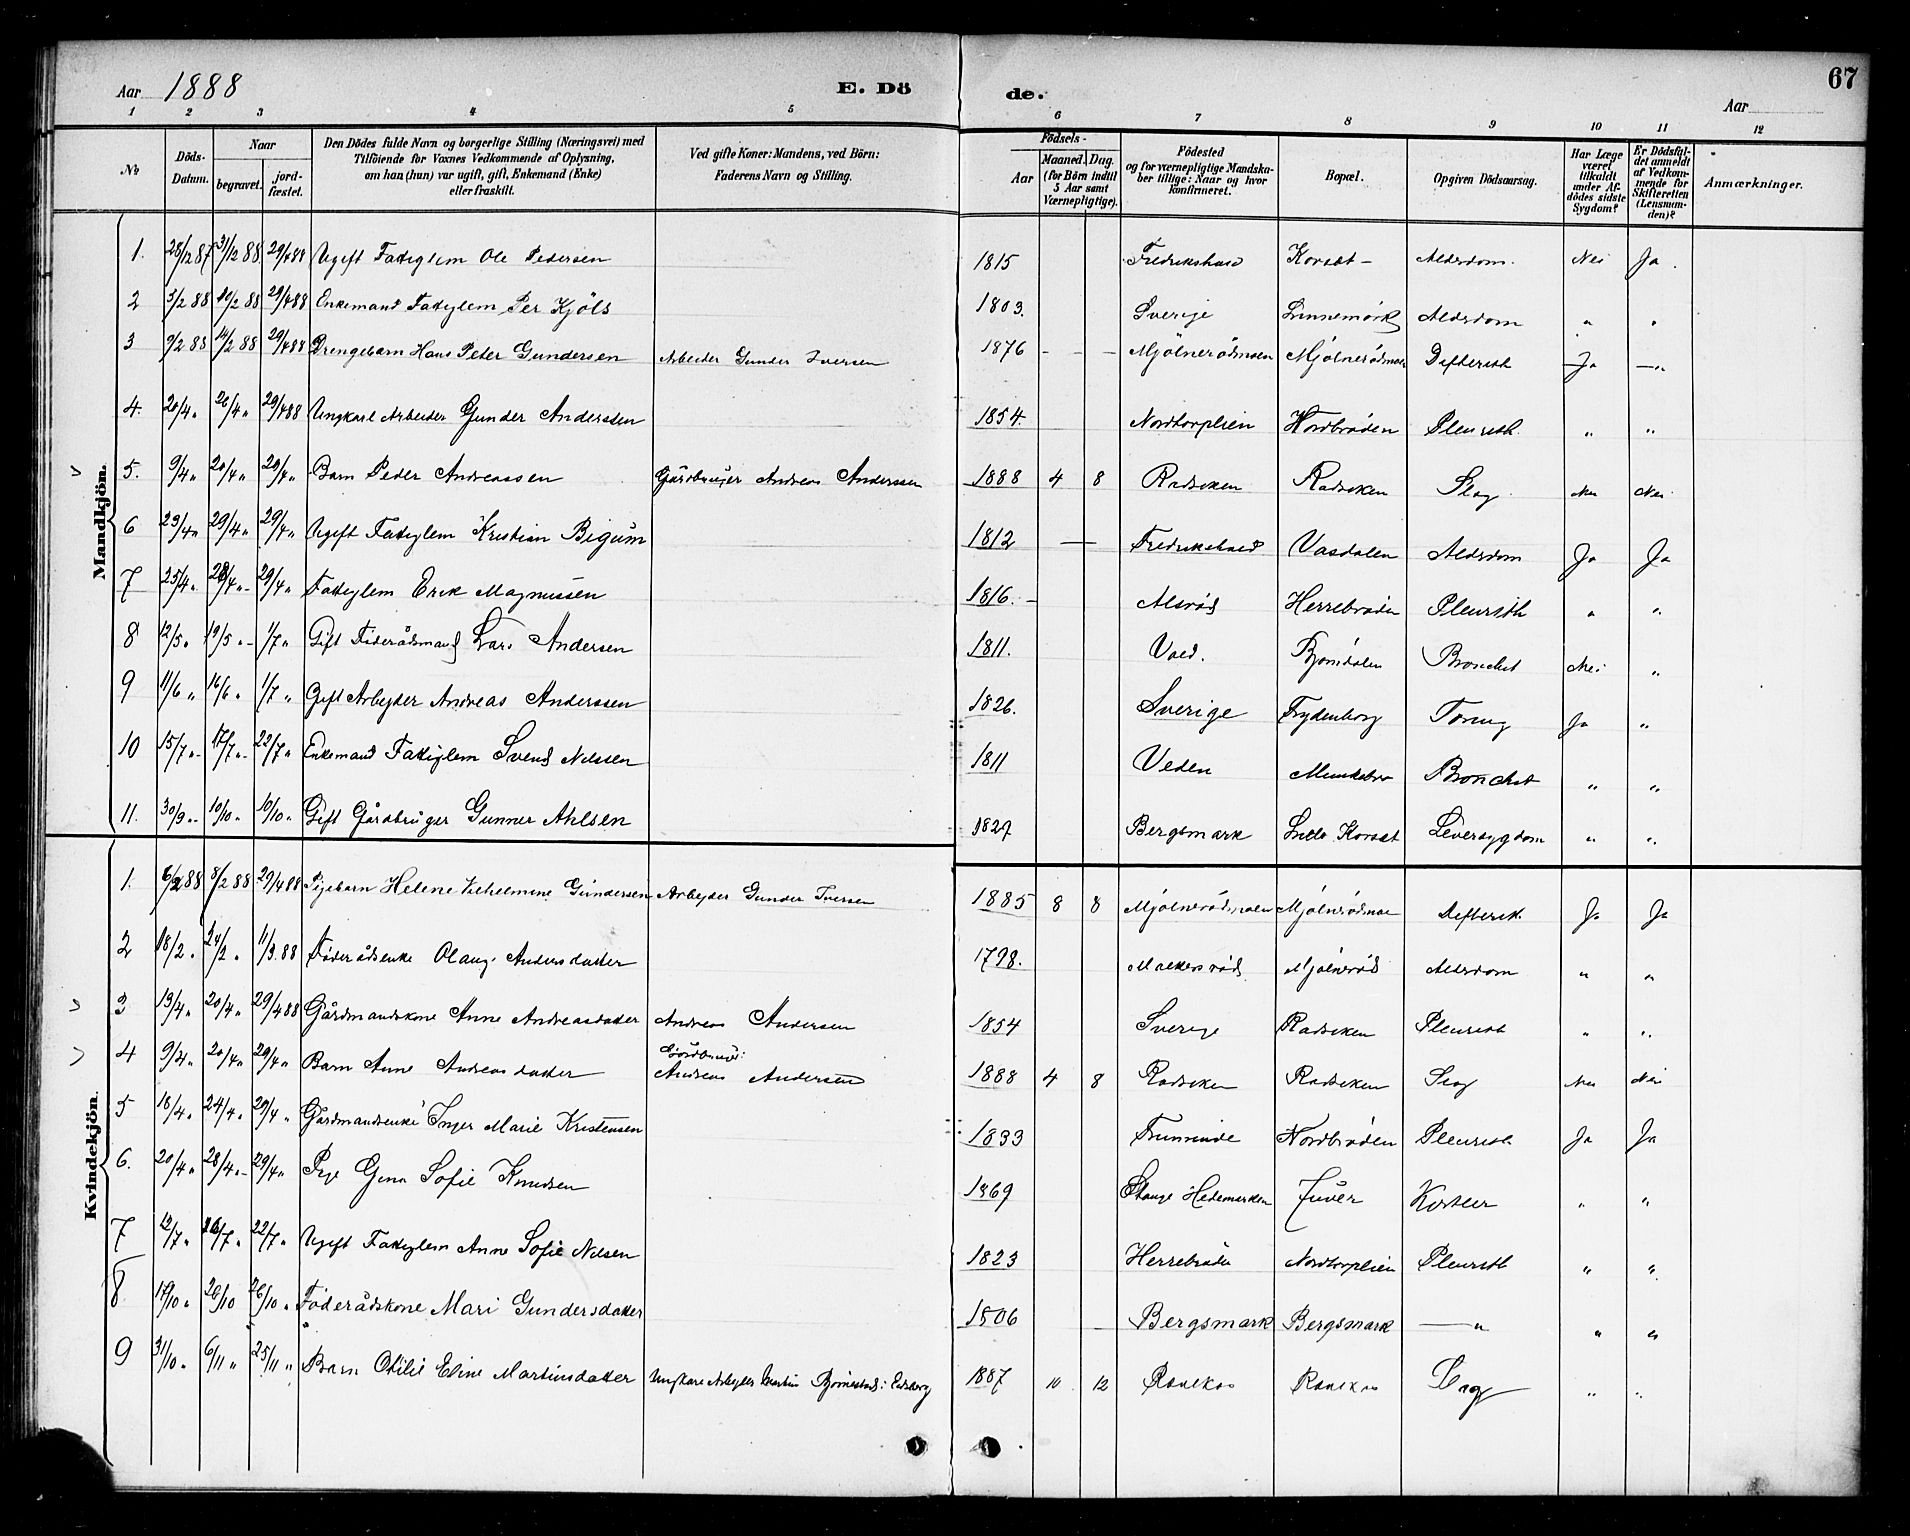 Aar 1888 E. Döde. Aar 67
1 2 3 4 5 6 7 8 9 10 11 12
No Döds-Datum. Naar begravet. jordfæstet. Den Dödes fulde Navn og borgerlige Stilling (Næringsvei) med Tilföiende for Voxnes Vedkommende af Oplysning, om han (hun) var ugift, gift, Enkemand (Enke) eller fraskilt. Ved gifte Koner: Mandens, ved Börn: Faderens Navn og Stilling. Födsels- Aar Maaned. Dag. (for Börn indtil 5 Aar samt Værnepligtige). Födested og for værnepligtige Mandskaber tillige: Naar og hvor konfirmeret. Bopæl. Opgiven Dödsaarsag. Har Læge været tilkaldt under Afdödes sidste Sygdom? Er Dödsfaldet anmeldt af Vedkommende for Skifteretten (Lensmanden)? Anmærkninger.
Mandkjön.
1. 28/12 87 31/12 88 29/4 88 Ugift Fattiglem Ole Pedersen 1815 Fredrikshald Korsæt - Alderdom. Nei Ja.
2 3/2 88 10/2 88 29/4 88 Enkemand Fattiglem Per Kjöls 1803. Sverige Linnemörk Alderdom " "
3 9/2 88 14/2 88 29/4 88 Drengebarn Hans Peter Gundersen Arbeider Gunder Iversen 1876 - - - Mjölnerödmoen Mjölnerödmoen Difterith Ja — "
4. 20/4 " 26/4 " 29/4 88 Ungkarl Arbeider Gunder Anderssen 1854. Nordtorpleien Nordbröden Pleurith. " "
5. 9/4 " 20/4 " 29/4 " Barn Peder Andreassen Gårdbruger Andreas Anderssen 1888 4 8 Rødseken Rødseken Slag. Nei Nei
6 23/4 " 29/4 " 29/4 " Ugift Fattiglem Kristian Bigum 1812 — Fredrikshald Vasdalen Alderdom Ja Ja
7 25/4 " 28/4 " - 29/4 " Fattiglem Erik Magnussen 1816. - Alsröd Herrebröden Pleurith " "
8 12/5 " 19/5 " - 1/7 " Gift Föderådsmand Lars Andersen 1811. Vold. Bjørndalen Bronchit Nei "
9 11/6 " 16/6 " 1/7 " Gift Arbeyder Andreas Anderssen 1826. Sverige Frydenborg Tæring Ja "
10 15/7 " - 17/7 " - 22/7 " Enkemand Fattiglem Svend Nilssen 1811 Veden Munkebro Bronchit " "
11. 30/9 " - 10/10 " 10/10 " Gift Gårdbruger Gunner Ahlsen 1829 Bergsmark Korsæt Leversygdom " "
Kvindekjön.
1. 6/2 88 8/2 88 29/4 88 Pigebarn Helene Vilhelmine Gundersen Arbeyder Gunder Iversen 1885 8 8 Mjölnerödmoen Mjölnerödmoe Difterit Ja Ja
2 18/2 " 24/2 " 11/3 88 Föderådsenke Olaug Andersdatter 1798. Mjölneröd Alderdom " "
3 13/4 " 20/4 " 29/4 88 Gårdmandskone Anne Andreasdatter Andreas Andersen 1854 Sverige Rødseken Pleurith " "
4 9/4 " 20/4 " 29/4 " Barn Anne Andreasdatter Gårdbruger Andreas Andersen 1888 4 8 Rødseken Rødseken Slag Nei Nei
5 18/4 " 24/4 " 29/4 " Gårdmandsenke Inger Marie Kristensen 1833 Nordbröden Pleurith Ja Ja
6. 20/4 " 28/4 " - 29/4 " Pige Gina Sofie Knudsen 1869 Stange Hedemarken " "
7 12/7 " 16/7 " 22/7 " Ugift Fattiglem Anne Sofie Nilsen 1823 Herrebröden Nordtorpleien Pleurith " "
8. 17/10 " 26/10 26/10 " Föderådskone Mari Gundersdatter 1806 - Bergsmark Bergsmark — " " "
9 31/10 " 6/11 " 25/11 " Barn Otilie Eline Martinsdatter Ungkarl Arbeyder Martin Bjørnestad i Eidsberg 1887 10 12 Slag " "